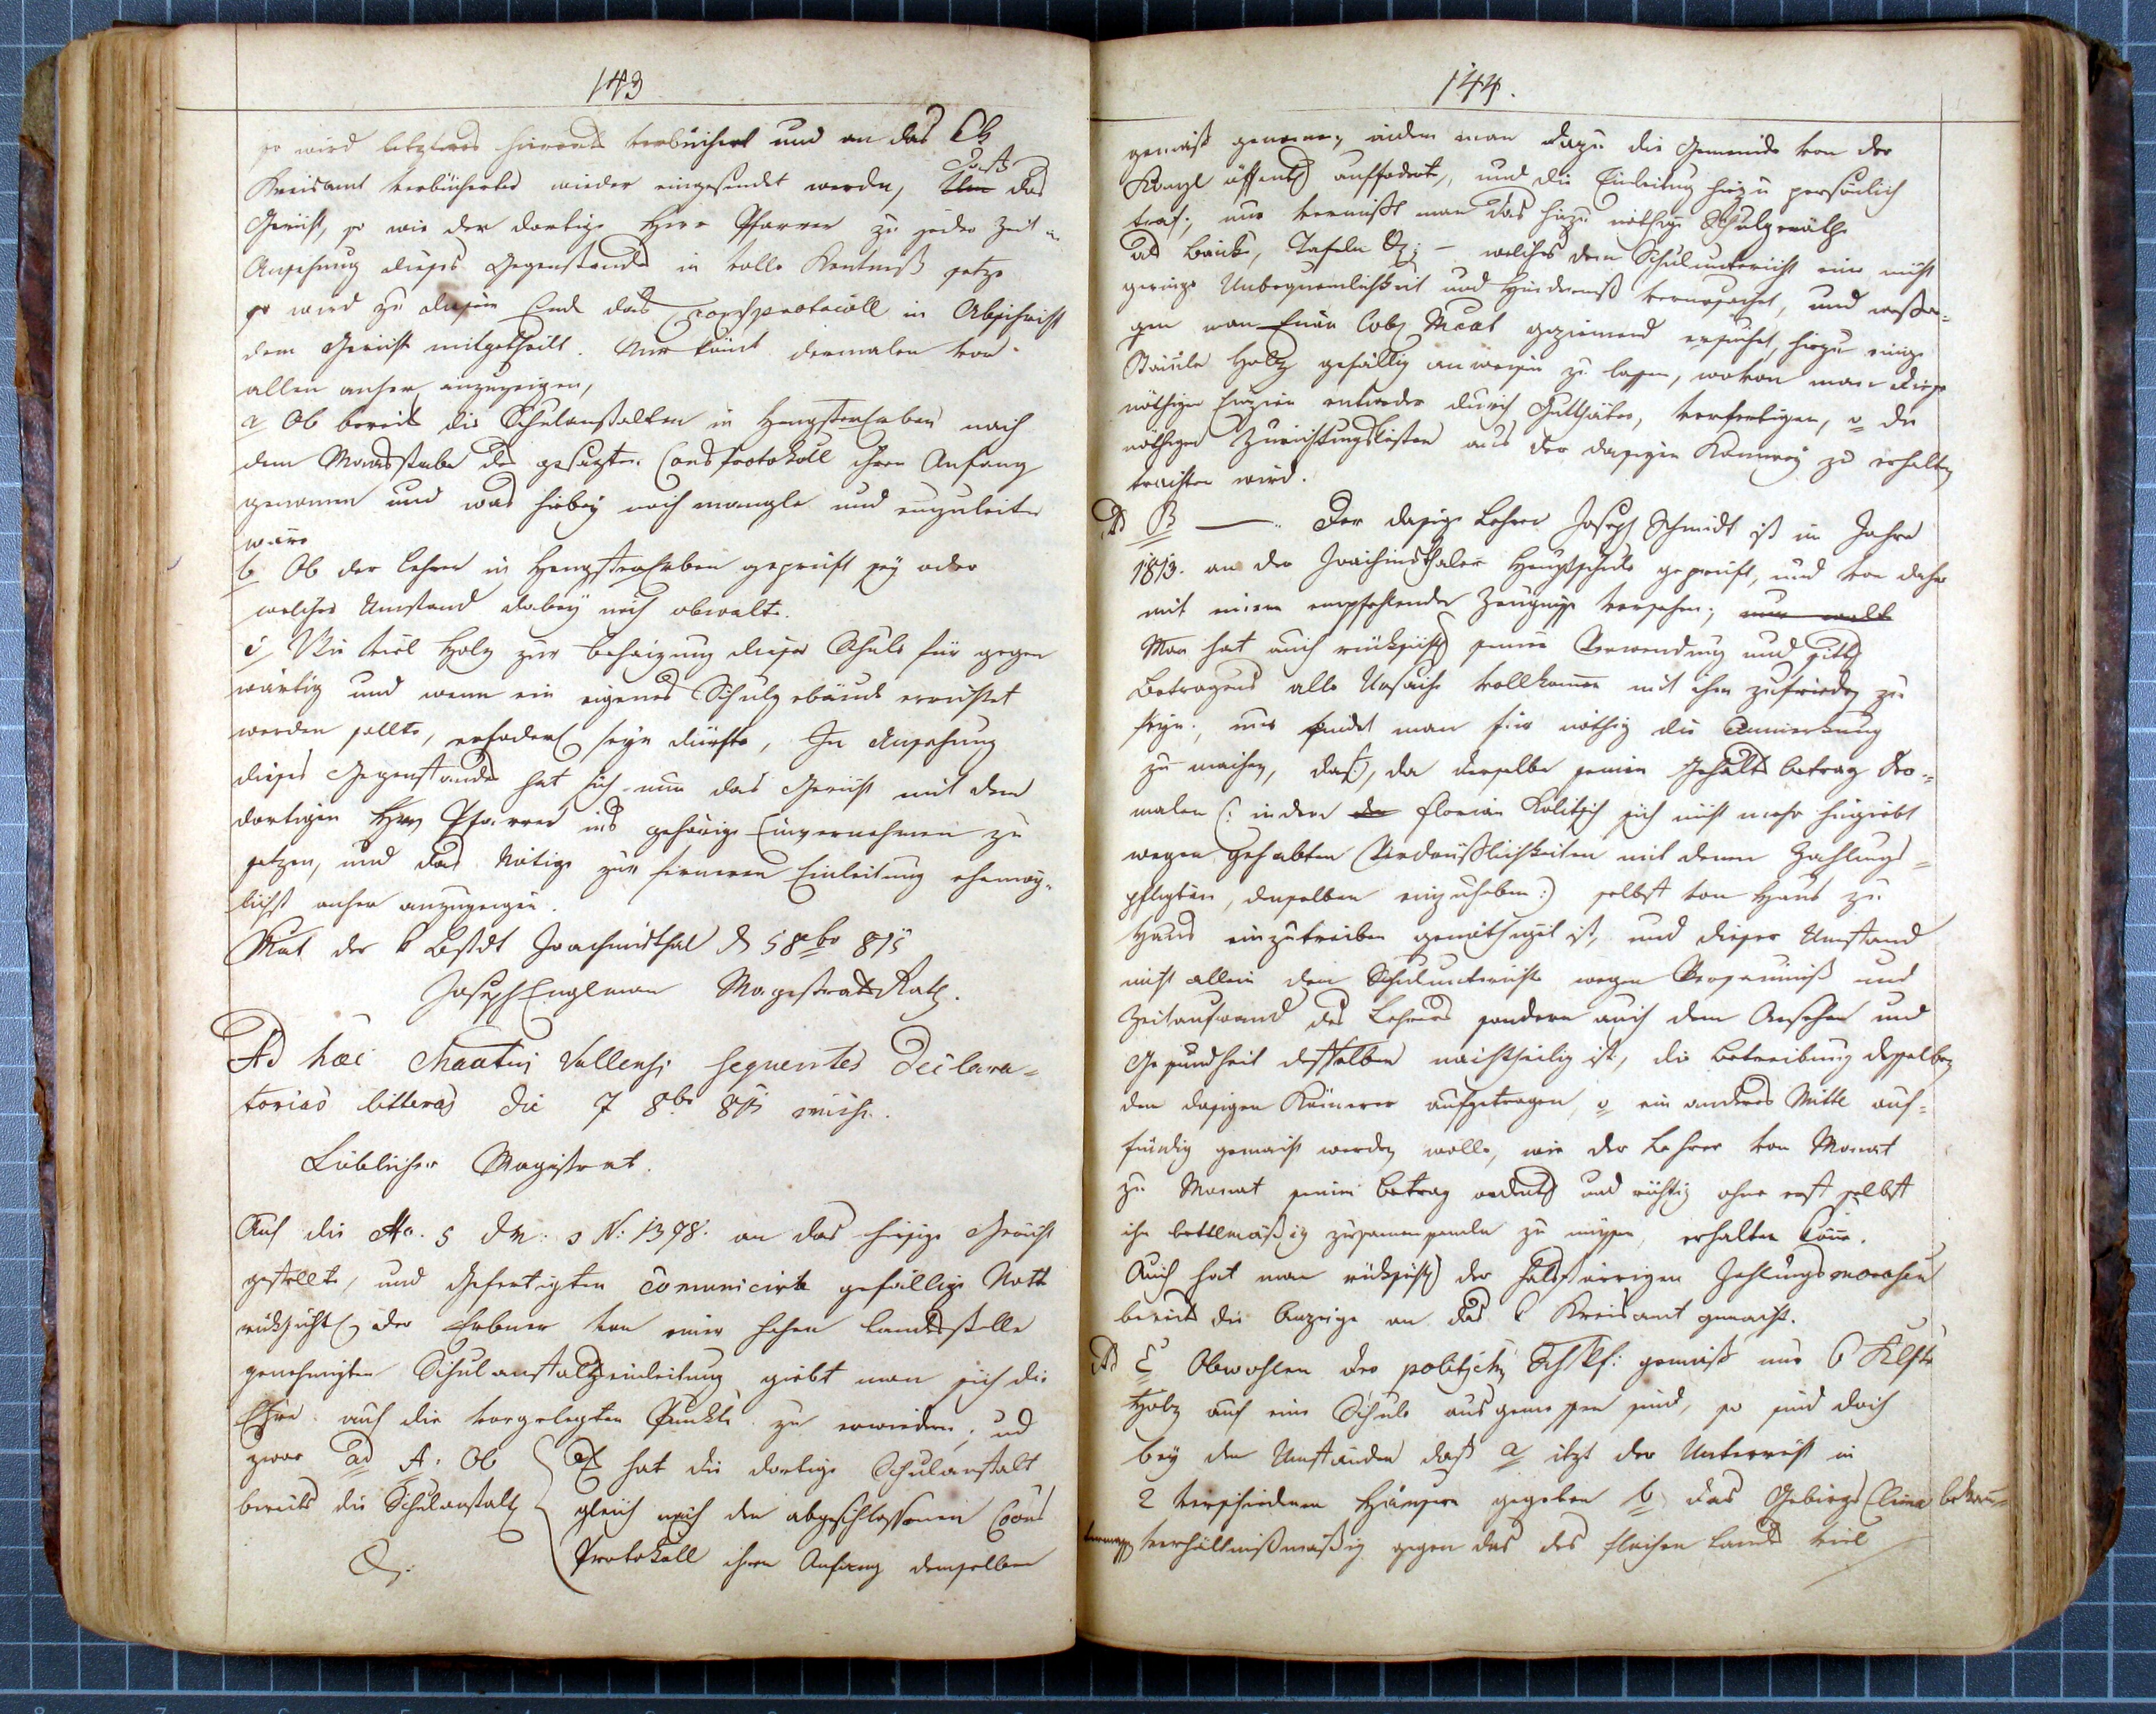 143
so wird letzteres hierorts verbüchert und an das Lb
Kreisamt verbücherter wieder eingesendet werden, daß das
Gericht, so wie der dortige Herr Pfarrer zu jeder Zeit in
Ansehung dieses Gegenstandes in volle Kentniß setze
so wird zu diesem Ende das Coonsprotocoll in Abschrift
dem Gericht mitgetheilt. Nur kömt dermalen vor
allen anher anzuzeigen,
a Ob bereits die Schulanstalten in Hengstererben nach
dem Maasstabe des gesagten Coonsprotokoll ihren Anfang
genomen und was hiebey noch mangle und einzuleiten
wäre
b Ob der Lehrer in Hengstererben geprüft sey oder
welcher Umstand dabey noch obwalte.
c Wie viel Holz zur Beheizung dieser Schule für gegen
wärtig und wenn ein eigenes Schulgebäude errichtet
werden sollte, erfoderl seyn dürfte, In Ansehung
dieses Gegenstandes hat sich nun das Gericht mit dem
dortigen Hrn Pfarrer ins gehörige Einvernehmen zu
setzen, und das Nötige zur ferneren Einleitung ehemög-
lichst anher anzuzeigen.
Mat der k Bstdt Joachimsthal d 5 8br 815
Joseph Englman Magistrats Rath.
Ad haec Maatui Vallensi sequentes declara-
torias litteras die 7 8br 815 misi.
Löblicher Magistrat.
Auf die No. 5 dM: s N: 1398. an das hiesige Gericht
gestellte, und Gefertigten comunicirte gefällige Note
rüksichtl der Erbner von einer hohen Landesstelle
genehmigten Schulanstaltseinleitung giebt man sich die
Ehre auf die vorgelegten Punkte zu erwiedern; ud
zwar ad A. Ob
bereits die Schulanstalt
&.
Es hat die dortige Schulanstalt
gleich nach den abgeschlossenen Coons
Protokoll ihren Anfang demselben
144.
gemäß genomen, indem man dazu die Gemeinde von der
Kanzl öffentl auffoderte, und die Einleitung hiezu persönlich
traf; nur vermißt man das hiezu nöthige Schulgeräthe
als Bänke, Tafeln &; – welches dem Schulunterricht eine nicht
geringe Unbequemlichkeit und Hinderniß verursachet, und
man Einen Lobl Maat geziemend ersuchet, hiezu einige
Stämle Holz gefällig anweisen zu lassen, wovon man diese
nöthigen entweder durch Gutthäter, verfertigen, o die
nöthigen Zurichtungskösten aus der dasigen Kamerey zu erhalten
trachten wird.
Ad B — Der dasige Lehrer Joseph Schmidt ist im Jahre
1813. an der Joachimsthaler Hauptschule geprüft, und von daher
mit einem empfehlenden Zeugnisse versehen; nur wolle
Man hat auch rüksichtl seiner Verwendung und sittl
Betragens alle Ursache vollkomen mit ihm zufrieden zu
seyn; nur findet man hier nöthig die Anmerkung
zu machen, daß, da derselbe seinen Gehaltsbetrag der-
malen (: indem der Florian Kolitsch sich nicht mehr hingiebt
wegen gehabten Verdrüßlichkeiten mit denen Zahlungs-
pflegten, denselben einzuheben:) selbst von Haus zu
Haus einzutreiben genöthiget ist, und dieser Umstand
nicht allein dem Schulunterricht wegen Versäumniß und
Zeitaufwand des Lehrers sondern auch dem Ansehen und
Gesundheit desselben nachtheilig ist, die Betreibung desselben
den dasigen Kämerer aufgetragen, o ein anderes Mittl auf-
findig gemacht werden wolle, wie der Lehrer von Monat
zu Monat seinen Betrag ordentl und richtig ohne erst selbst
ihn bettlmäßig zusamensameln zu müssen, erhalten könne.
Auch hat man rüksichtl der halsstärrigen Zahlungsmorosen
bereits die Anzeige an das k Kreisamt gemacht.
Ad C Obwohlen der politschen Schlvf: gemäß nur 6 Klft
Holz auf eine Schule ausgemessen sind, so sind doch
bey den Umständen daß a itzt der Unterricht in
2 verschiedenen Häusern gegeben b das Gebirgs Clima bekan-
termassen verhältnißmäßig gegen das des flachen Lands viel